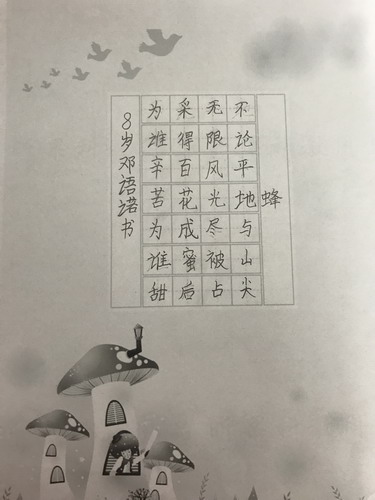 蜂
不论平地与山尖
无限风光尽被占
采得百花成蜜后
为谁辛苦为谁甜
8岁邓语诺书